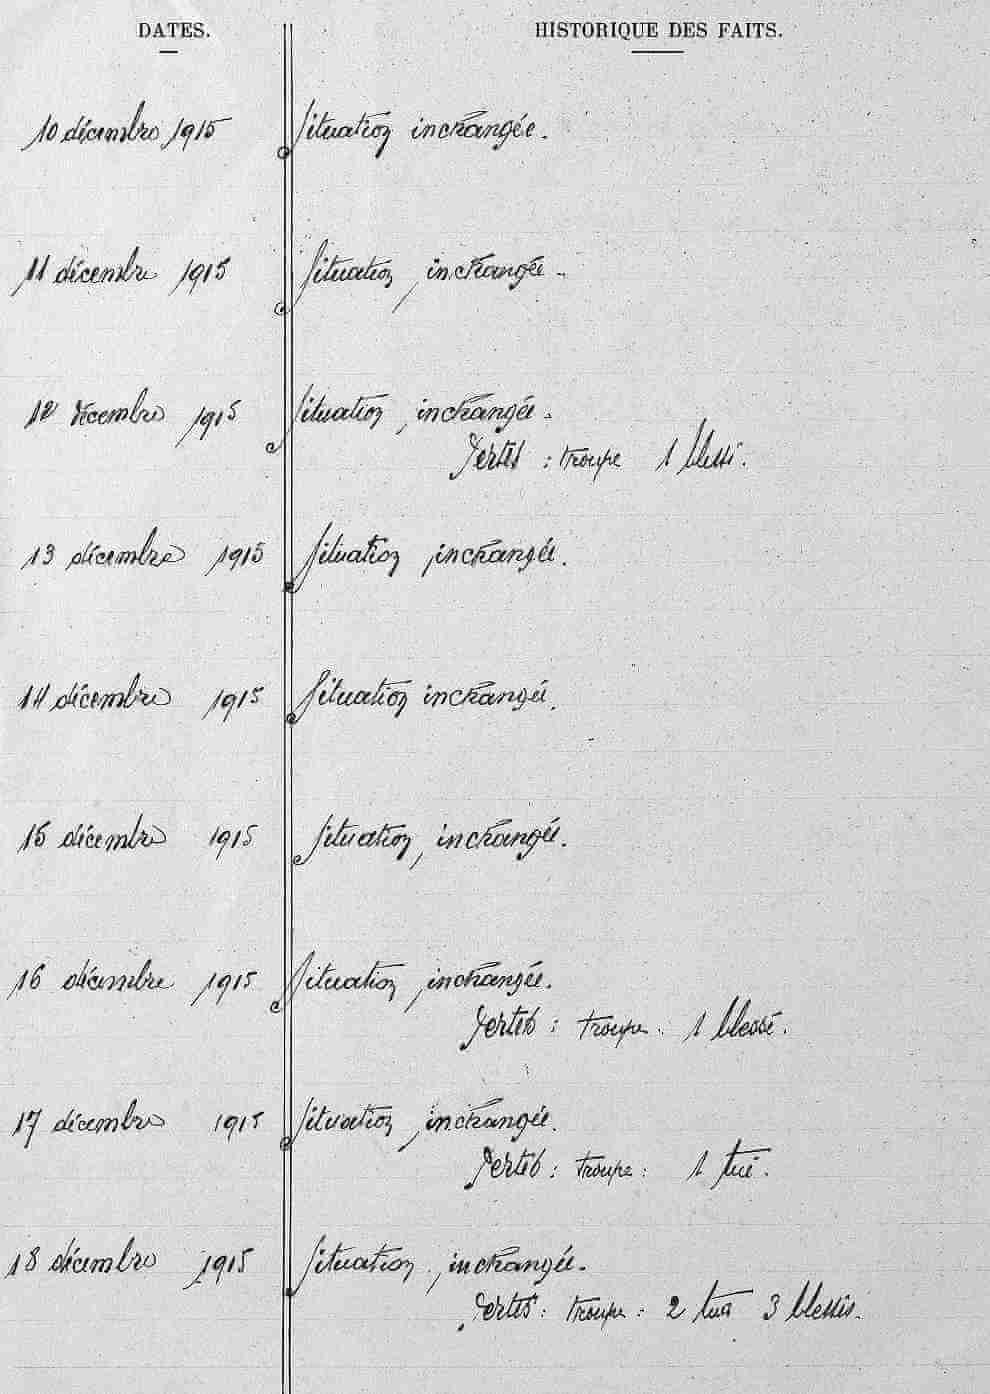 DATES. HISTORIQUE DES FAITS.
10 décembre 1915 Situation inchangée.
11 décembre 1915 Situation inchangée.
12 décembre 1915 Situation inchangée.
Pertes : troupe 1 blessé.
13 décembre 1915 Situation inchangée.
14 décembre 1915 Situation inchangée.
15 décembre 1915 Situation inchangée.
16 décembre 1915 Situation inchangée.
Pertes : troupe : 1 blessé.
17 décembre 1915 Situation inchangée.
Pertes : troupe : 1 tué.
18 décembre 1915 Situation inchangée.
Pertes : troupe : 2 tués 3 blessés.